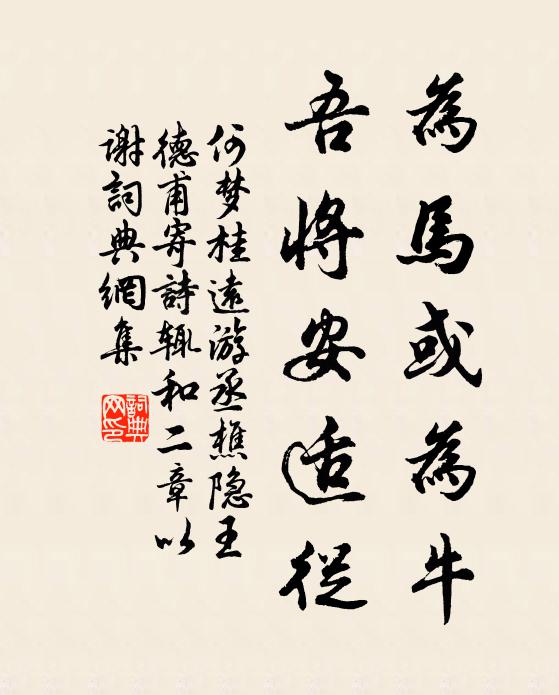 為馬或為牛
吾將安适從
何梦桂遠游丞樵隐王
德甫寄詩辄和二章以
謝詞典網集
詞典
网印